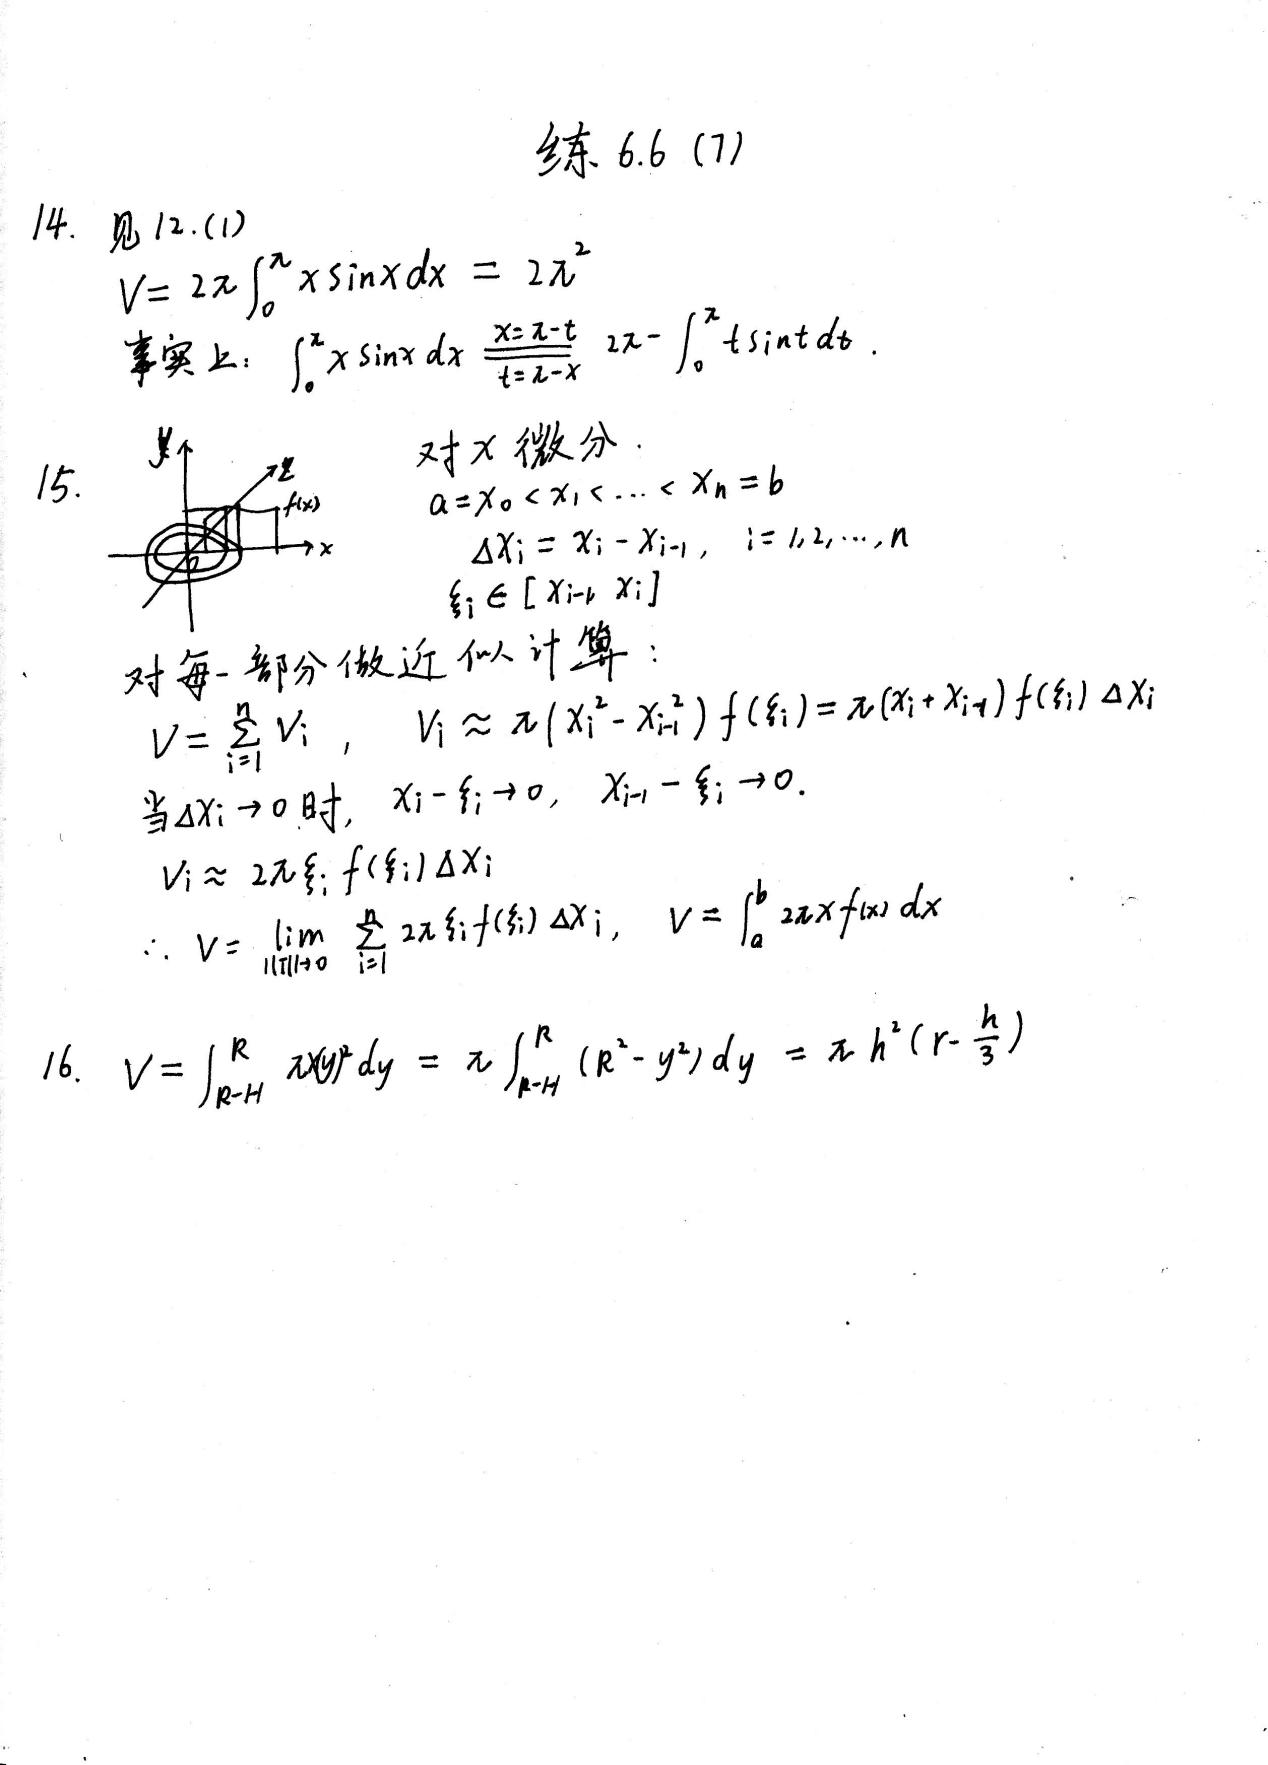 练 6.6 (7)
14. 见 12.(1)
V = 2π∫₀^π x sinx dx = 2π²
事实上: ∫₀^π x sinx dx \xlongequal[t=π-x]{x=π-t} 2π - ∫₀^π t sint dt.
15.
z
f(x)
x
对 x 微分.
a = x₀ < x₁ < … < xₙ = b
Δxᵢ = xᵢ - xᵢ₋₁, i = 1,2,…,n
ξᵢ ∈ [xᵢ₋₁, xᵢ]
对每一部分做近似计算:
V = ∑_{i=1}^{n} Vᵢ, Vᵢ ≈ π(xᵢ² - xᵢ₋₁²) f(ξᵢ) = π(xᵢ + xᵢ₋₁) f(ξᵢ) Δxᵢ
当 Δxᵢ → 0 时, xᵢ - ξᵢ → 0, xᵢ₋₁ - ξᵢ → 0.
Vᵢ ≈ 2πξᵢ f(ξᵢ) Δxᵢ
∴ V = lim_{||T||→0} ∑_{i=1}^{n} 2πξᵢ f(ξᵢ) Δxᵢ, V = ∫_a^b 2πx f(x) dx
16. V = ∫_{R-H}^{R} πx(y)² dy = π∫_{R-H}^{R} (R² - y²) dy = πh²(r - h/3)